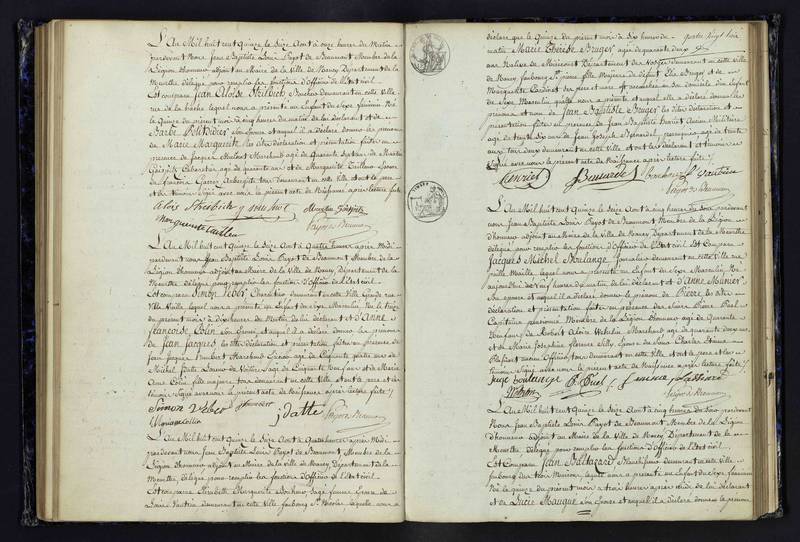 L'An Mil huit cent Quinze le Seize Aout à onze heures du Matin
pardevant Nous Jean Baptiste Louis Payot de Beaumont Membre de la
Légion d'honneur adjoint au Maire de la Ville de Nancy Département de la
Meurthe délégué pour remplir les fonctions d'Officier de l'Etat civil
Est comparu Jean Aloïse Streibich demeurant en cette Ville
rue de la hache lequel nous a présenté un Enfant du Sexe féminin Né
le Quinze du présent mois à cinq heures du matin de lui déclarant et de
Barbe Politdidier son Epouse et auquel il a déclaré donner les prénoms
de Marie Marguerite les dites déclaration et présentation faites en
présence de Jacques Marchand agé de Quarante Sept ans de Martin
agé de quarante ans et de Marguerite Tailleur Epouse
de demeurant en cette ville et ont le père
et témoins Signé avec nous le présent acte de Naissance après lecture faite
alois Streibich
marguerite tailleur Payot de Beaumont
L'An Mil huit cent Quinze le Seize Aout à Quatre heures après Midi
pardevant nous Jean Baptiste Louis Payot de Beaumont Membre de la
Légion d'honneur adjoint au Maire de la Ville de Nancy Département de la
Meurthe délégué pour remplir les fonctions d'Officier de l'Etat civil
Est comparu Simon Veber Charpentier demeurant en cette Ville Grande rue
Ville Vieille lequel nous a présenté un Enfant du Sexe Masculin Né le
du présent mois à dix heures du Matin de lui déclarant et d'Anne
françoise Colin son Epouse et auquel il a déclaré donner les prénoms
de Jean Jacques les dites déclaration et présentation faites en présence de
Jean Jacques humbert Marchand agé de Cinquante quatre ans de
Michel Datte Loueur de Voitures agé de Cinquante Neuf ans et de Marie
Anne Colin fille majeure tous demeurant en cette Ville et ont le père et
témoins Signé avec nous le présent acte de Naissance après lecture faite
Simon Veber jhumbert
Mariannecollin jdatte Payot de Beaumont
L'An Mil huit cent Quinze le Seize Aout à Quatre heures après Midi
pardevant nous Jean Baptiste Louis Payot de Beaumont Membre de la
Légion d'honneur adjoint au Maire de la Ville de Nancy Département de la
Meurthe délégué pour remplir les fonctions d'Officier de l'Etat civil
Est comparue Elisabeth Marguerite Sage femme Epouse de
Louis Vautrin demeurant en cette Ville faubourg St. Nicolas laquelle nous a
quatre vingt
déclaré que le Quinze du présent mois à Six heures du
matin Marie Thérèse Bruger agée de quarante deux
ans Native de Mirecourt Département des Vosges demeurant en cette ville
de Nancy faubourg St. pierre fille Majeure de défunt Elie Bruger et de
Marguerite Cardinet ses père et mère est accouchée en son domicile d'un Enfant
du Sexe Masculin qu'elle nous a présenté et auquel elle a déclaré donner les
prénoms et nom de Jean Baptiste Bruger les dites déclaration et
présentation faites en présence de Jean Baptiste henriet Ancien Militaire
agé de trente six ans de Jean Joseph Bénardel perruquier agé de trente
ans tous deux demeurant en cette Ville et ont les déclarant et témoins
Signé avec nous le présent acte de Naissance après lecture faite
henriet Benardel Vautrin
Payot de Beaumont
L'An Mil huit cent Quinze le Seize Aout à cinq heures du soir pardevant
nous Jean Baptiste Louis Payot de Beaumont Membre de la Légion
d'honneur adjoint au Maire de la Ville de Nancy Département de la Meurthe
délégué pour remplir les fonctions d'Officier de l'Etat civil Est Comparu
Jacques Michel Boulange Journalier demeurant en cette Ville rue
lequel nous a présenté un Enfant du Sexe Masculin Né
aujourd'hui à neuf heures du matin de lui déclarant et d'Anne Munier
Son épouse et auquel il a déclaré donner le prénom de Pierre les dites
déclaration et présentation faites en présence des Sieurs Pierre Piel
Capitaine pensionné Membre de la Légion d'honneur agé de Quarante
Neuf ans de Robert Aloïse Marchand agé de quarante deux ans
et de Marie Josephine florence Silly Epouse du Sieur Charles Etienne
tous demeurant en cette Ville ont le père et les
témoins Signé avec nous le présent acte de Naissance après lecture faite
Jacq boulange P. Piel
Payot de Beaumont
L'An Mil huit cent Quinze le Seize Aout à cinq heures du Soir pardevant
Nous Jean Baptiste Louis Payot de Beaumont Membre de la Légion
d'honneur adjoint au Maire de la Ville de Nancy Département de la
Meurthe délégué pour remplir les fonctions d'Officier de l'Etat civil
Est Comparu Jean Baltazard demeurant en cette Ville
faubourg des trois Maisons lequel nous a présenté un Enfant du Sexe féminin
Né le Quinze du présent mois à trois heures après midi de lui déclarant
et de Lucie Mauque Son Epouse et auquel il a déclaré donner le prénom